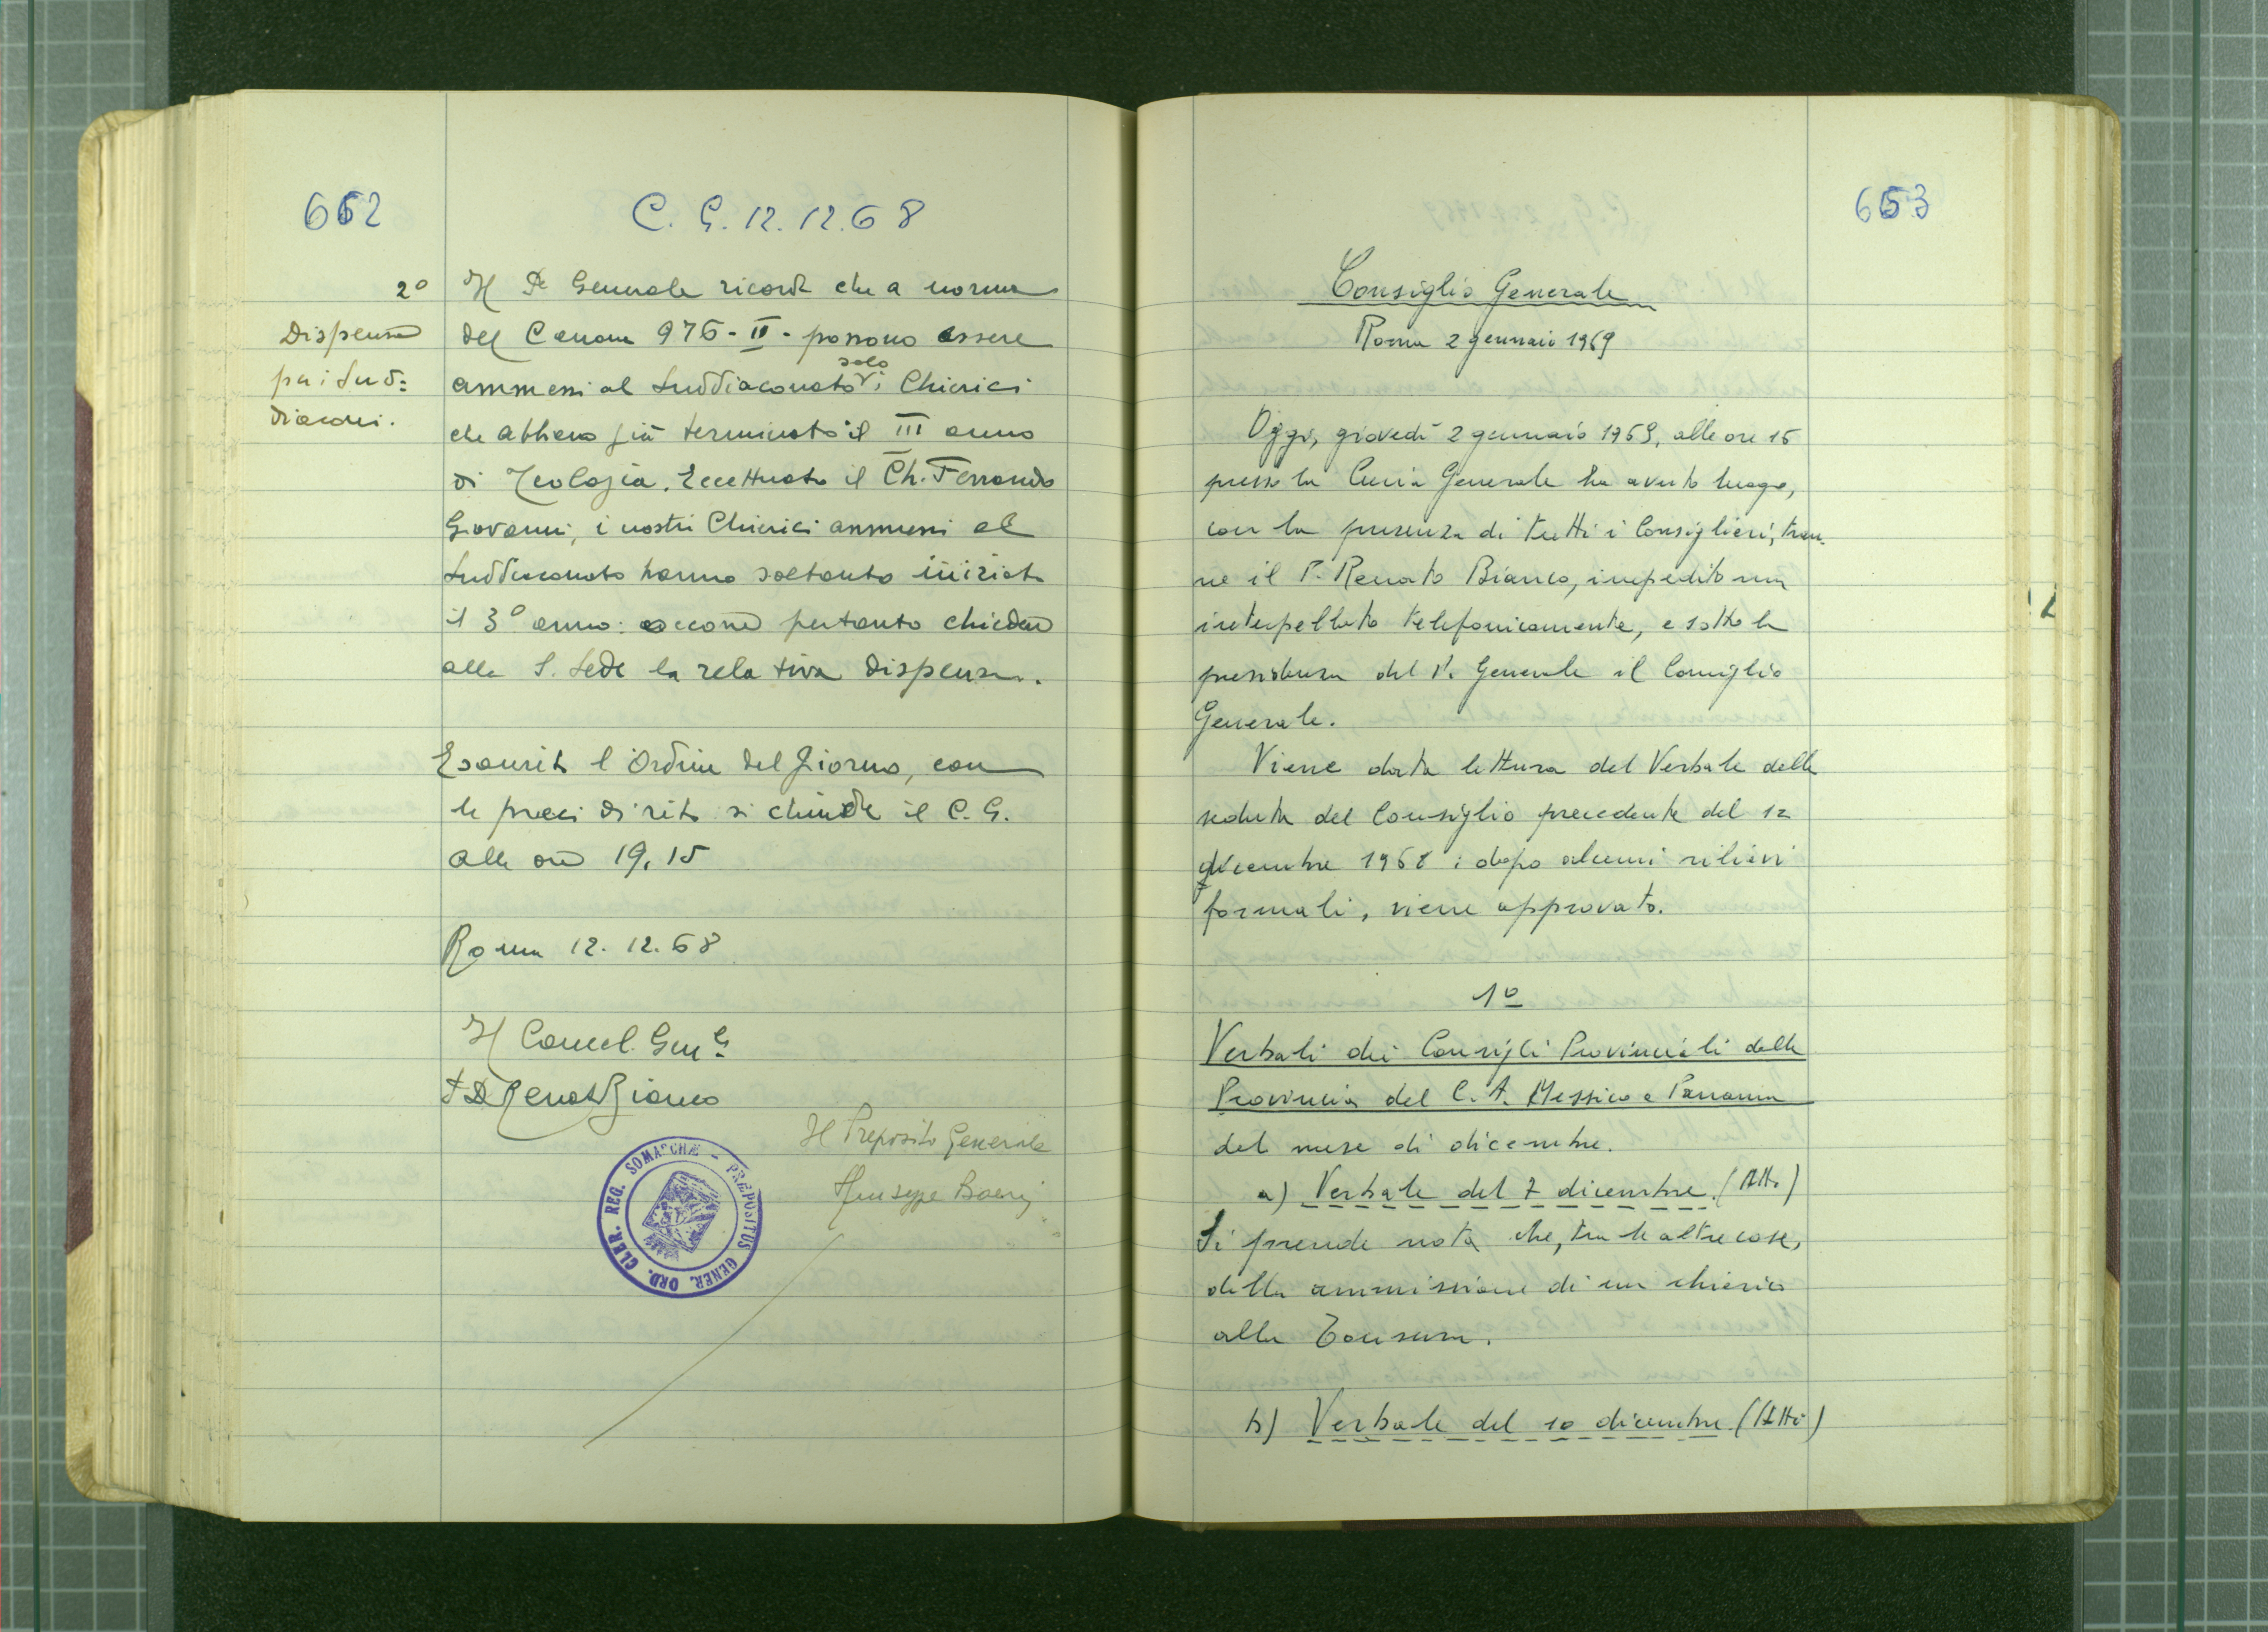 652
C. G. 12.12.68
2º
Dispensa
per i Sud=
diaconi.
Il P. Generale ricorda che a norma
del Canone 976-II- possono essere
solo
ammessi al Suddiaconato i Chierici
che abbiano già terminato il III anno
di Teologia. Eccettuato il Ch. Ferrando
Giovanni, i nostri Chierici ammessi al
Suddiaconato hanno soltanto iniziato
il 3º anno: occorre pertanto chiedere
alla S. Sede la relativa dispensa.
Esaurito l'Ordine del Giorno, con
le preci di rito si chiude il C. G.
alle ore 19,15
Roma 12.12.68
Il Cancel. Gen.
P. D. Renato Bianco
Il Preposito Generale
Giuseppe Boeris
ORD. CLER. REG. SOMASCHÆ - PRÆPOSITUS GENER.
653
Consiglio Generale
Roma 2 gennaio 1969
Oggi, giovedì 2 gennaio 1969, alle ore 16
presso la Curia Generale ha avuto luogo,
con la presenza di tutti i Consiglieri, tran-
ne il P. Renato Bianco, impedito ma
interpellato telefonicamente, e sotto la
presidenza del P. Generale il Consiglio
Generale.
Viene data lettura del Verbale della
seduta del Consiglio precedente del 12
dicembre 1968: dopo alcuni rilievi
formali, viene approvato.
1º
Verbali dei Consigli Provinciali della
Provincia del C. A. Messico e Panama
del mese di dicembre.
a) Verbale del 7 dicembre. (Atti)
Si prende nota che, tra le altre cose,
della ammissione di un chierico
alla Tonsura.
b) Verbale del 10 dicembre (Atti)